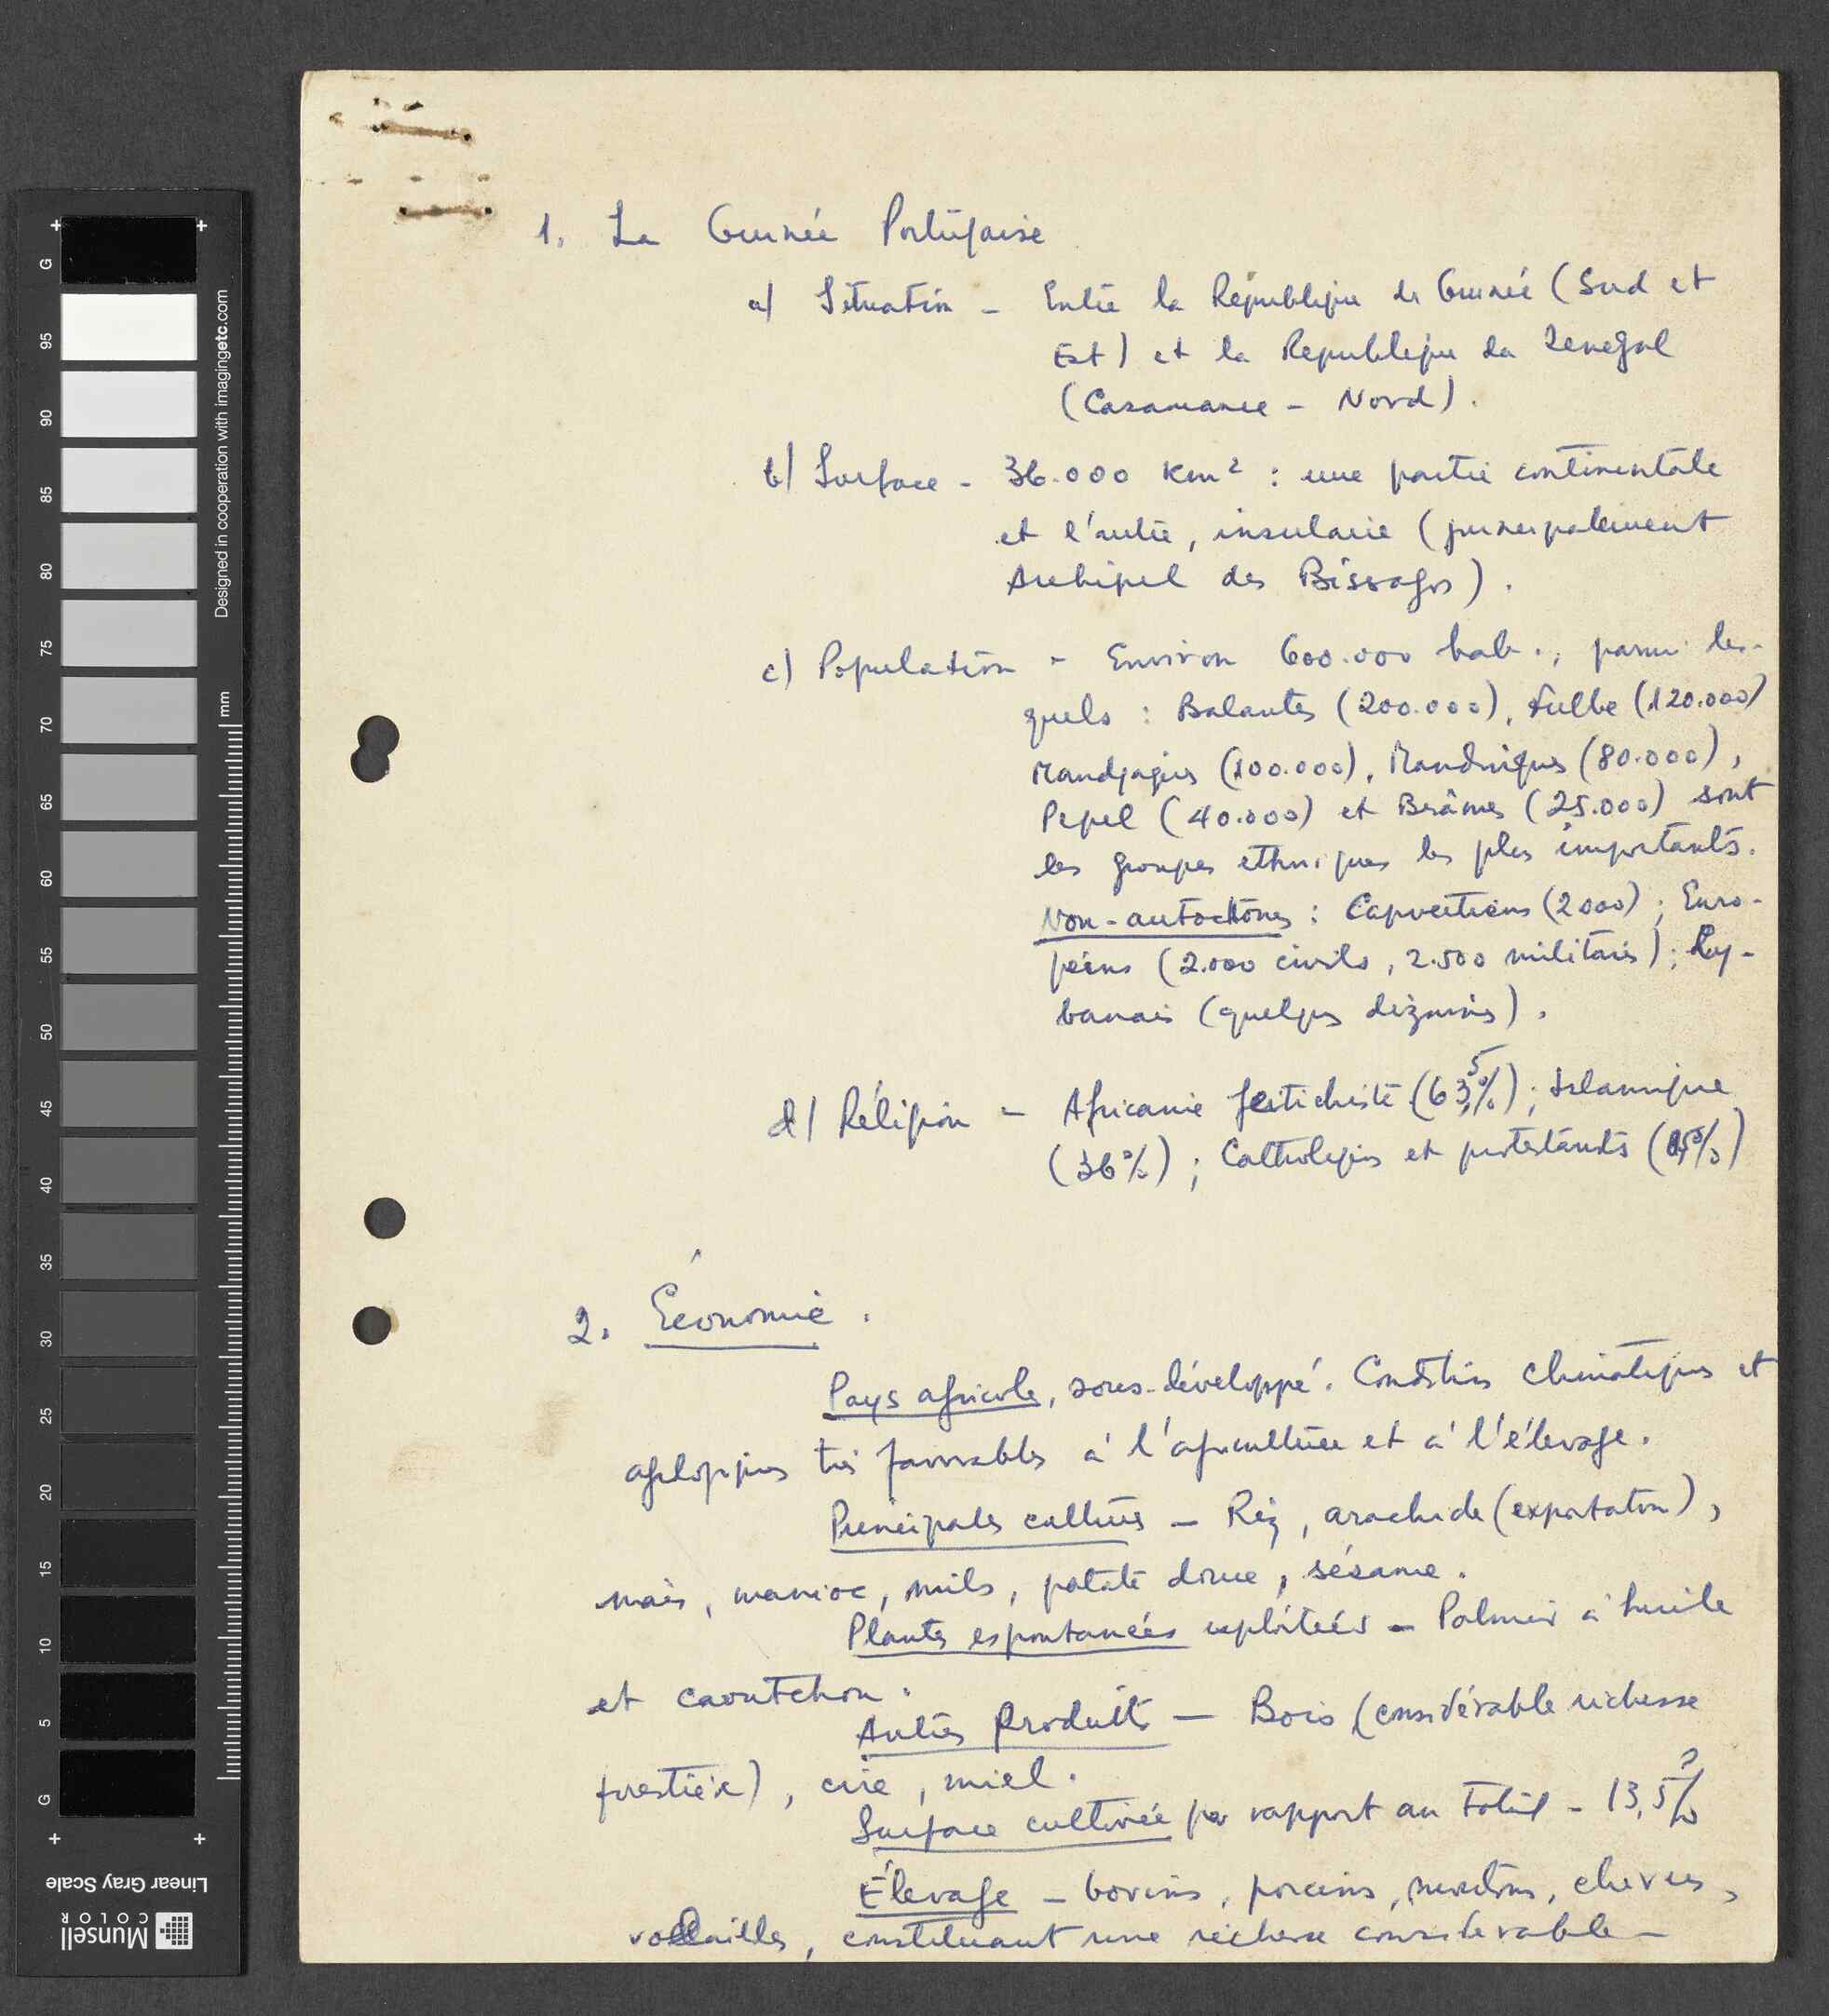 1. La Guinée Portugaise
a) Situation – Entre la République de Guinée (Sud et
Est) et la Republique du Senegal
(Casamance – Nord).
b) Surface – 36.000 Km² : une partie continentale
et l'autre, insulaire (principalement
Archipel des Bissagos).
c) Population – Environ 600.000 hab., parmi les-
quels : Balantes (200.000), Fulbe (120.000)
Mandjaques (100.000), Mandingues (80.000),
Pepel (40.000) et Brâmes (25.000) sont
les groupes ethniques les plus importants.
Non-autochtones : Capverdiens (2000) ; Euro-
péens (2.000 civils, 2.500 militaires) ; Ly-
banais (quelques dizaines).
d) Réligion – Africaine fetichiste (63,5%) ; Islamique
(36%) ; Catholiques et protestants (0,5%)
2. Économie.
Pays agricole, sous-développé. Conditions climatiques et
très favorables à l'agriculture et à l'élevage.
Principales cultures – Riz, arachide (exportation),
maïs, manioc, mils, patate douce, sésame.
Plantes espontanées exploitées – Palmier à huile
et caoutchou.
Autres produits – Bois (considérable richesse
forestière), cire, miel.
Surface cultivée par rapport au total – 13,5%
?
Élevage – bovins, porcins, moutons, chèvres,
volailles, constituant une richesse considerable –
G
95
90
85
80
75
70
65
60
55
50
45
40
35
30
25
20
15
10
5
G
mm
Designed in cooperation with imagingetc.com
Linear Gray Scale
Munsell
COLOR